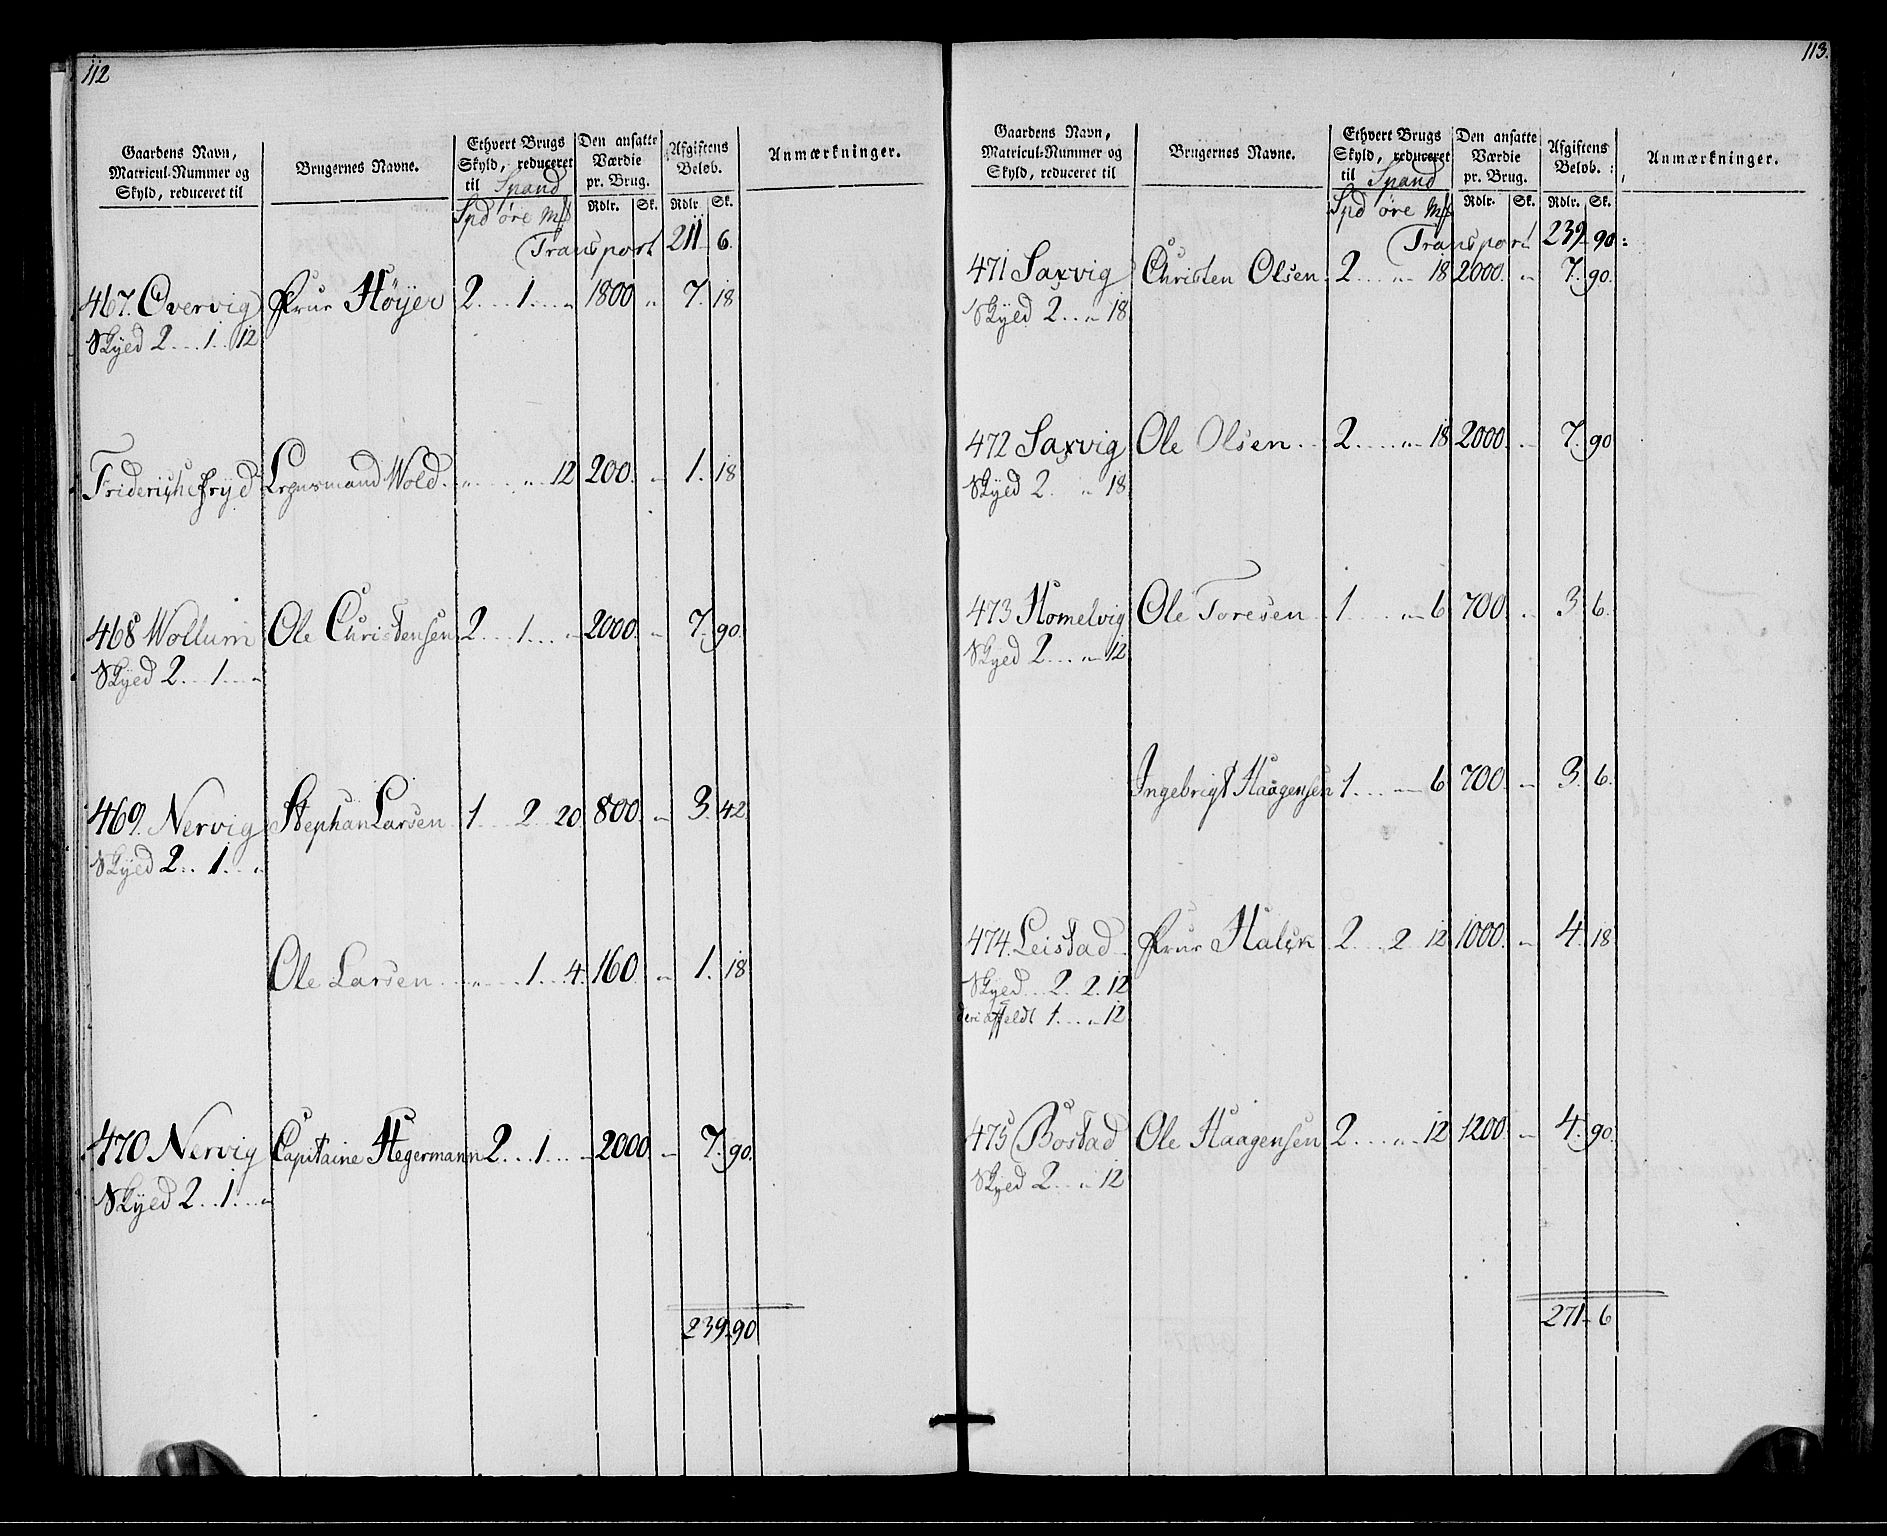 112
Gaardens Navn, Matricul-Nummer og Skyld, reduceret til
Brugernes Navne.
Ethvert Brugs Skyld, reduceret til Spand
Den ansatte Værdie pr. Brug.
Afgiftens Beløb.
Anmærkninger.
Spd øre Mk Rdlr. Sk. Rdlr. Sk.
Transport 211 6.
467. Overvig Frue Höyer 2 1 „ 1800 „ 7. 18
Skyld 2 1 12
Friderichsfryd Lensmand Wold „ „ 12 200 „ 1. 18
468 Wollum Ole Christensen 2 1 „ 2000 „ 7. 90.
Skyld 2 1 „
469. Nervig Stephan Larsen 1 2 20 800 „ 3. 42
Skyld 2 1 „
Ole Larsen „ 1 4. 160 „ 1. 18
470 Nervig Capitaine Hegermann 2 1 „ 2000 „ 7. 90.
Skyld 2 1 „
239. 90
113.
Gaardens Navn, Matricul-Nummer og Skyld, reduceret til
Brugernes Navne.
Ethvert Brugs Skyld, reduceret til Spand
Den ansatte Værdie pr. Brug.
Afgiftens Beløb.
Anmærkninger.
Spd øre Mk Rdlr. Sk. Rdlr. Sk.
Transport 239 90
471 Saxvig Christen Olsen 2 „ 18 2000 „ 7. 90.
Skyld 2 „ 18
472 Saxvig Ole Olsen 2 „ 18 2000 „ 7. 90
Skyld 2 „ 18
473 Homelvig Ole Toresen 1 „ 6 700 „ 3. 6.
Skyld 2 „ 12
Ingebrigt Haagensen 1 „ 6 700 „ 3. 6.
474. Leistad Frue Halck 2 2 12 1000. „ 4. 18
Skyld 2 2. 12
deri affeldt 1 „ 12
475 Bostad Ole Haagensen 2 „ 12 1200. „ 4. 90.
Skyld 2 „ 12
271. 6